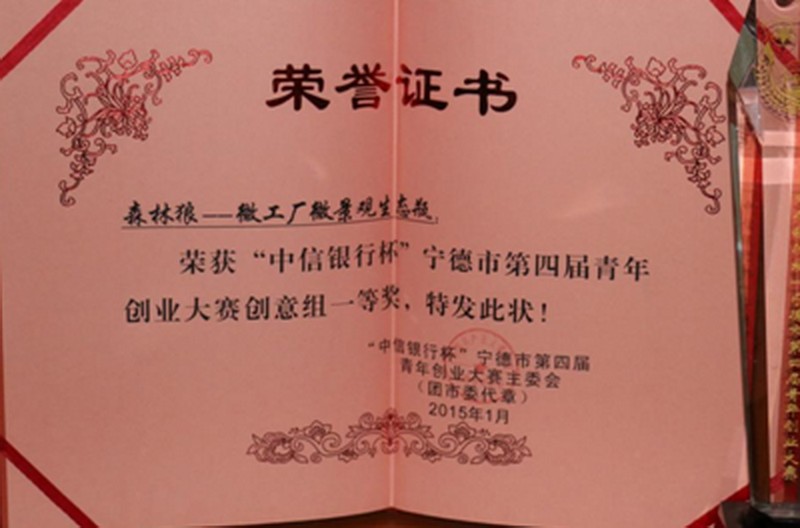 荣誉证书
森林狼——微工厂微景观生态瓶:
荣获“中信银行杯”宁德市第四届青年
创业大赛创意组一等奖，特发此状！
“中信银行杯”宁德市第四届
青年创业大赛主委会
（团市委代章）
2015年1月